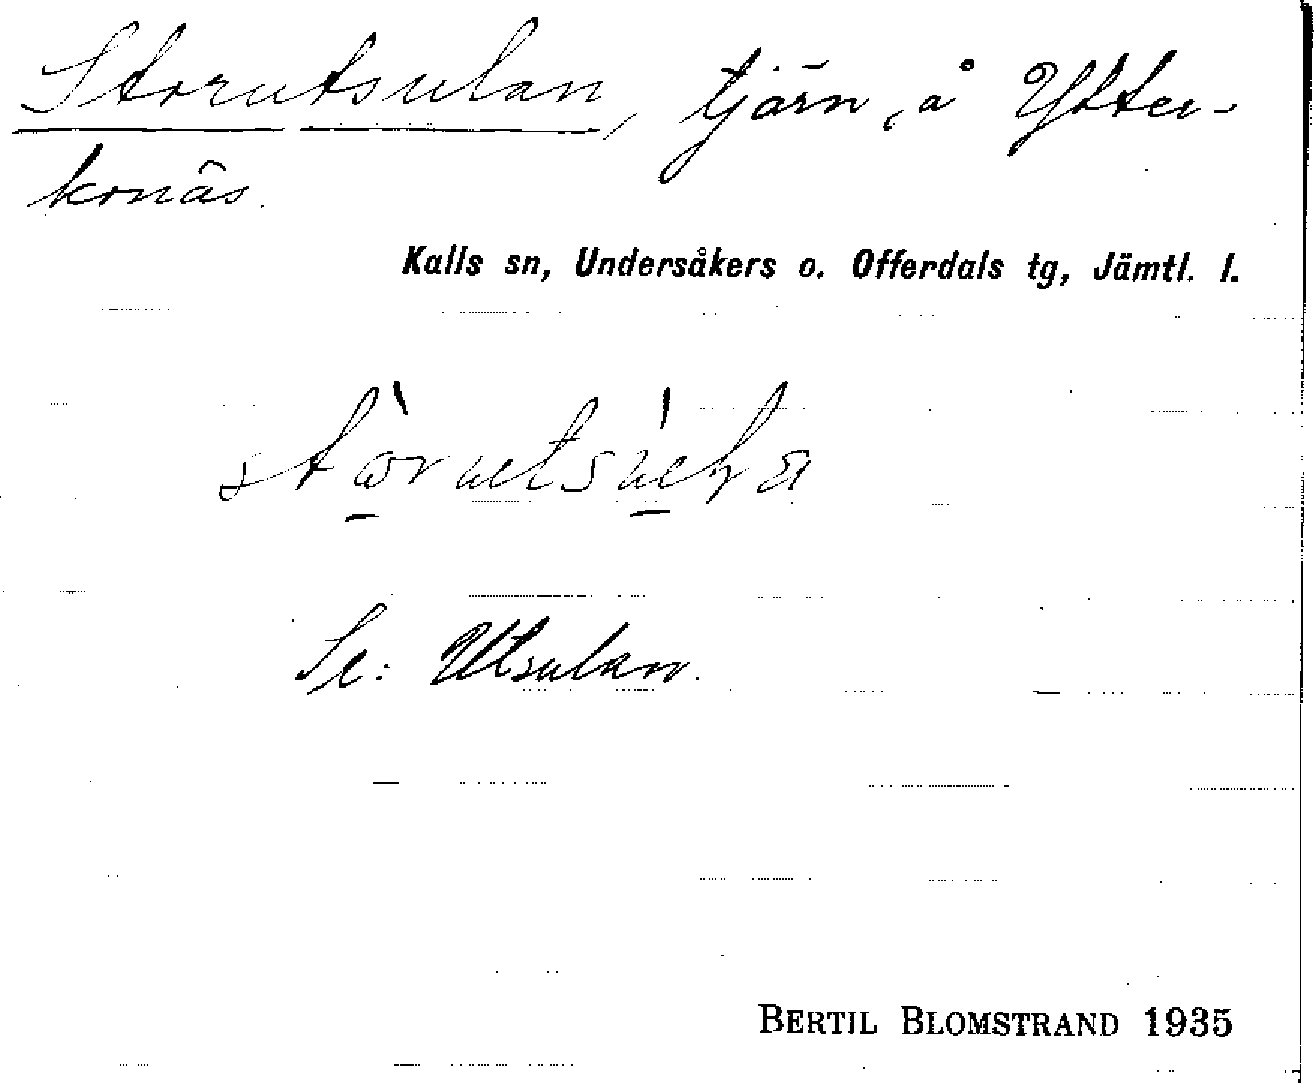 Storutsulan, tjärn, å Ytter-
konäs.
Kalls sn, Undersåkers o. Offerdals tg, Jämtl. l.
Se: Utsulan.
BERTIL BLOMSTRAND 1935